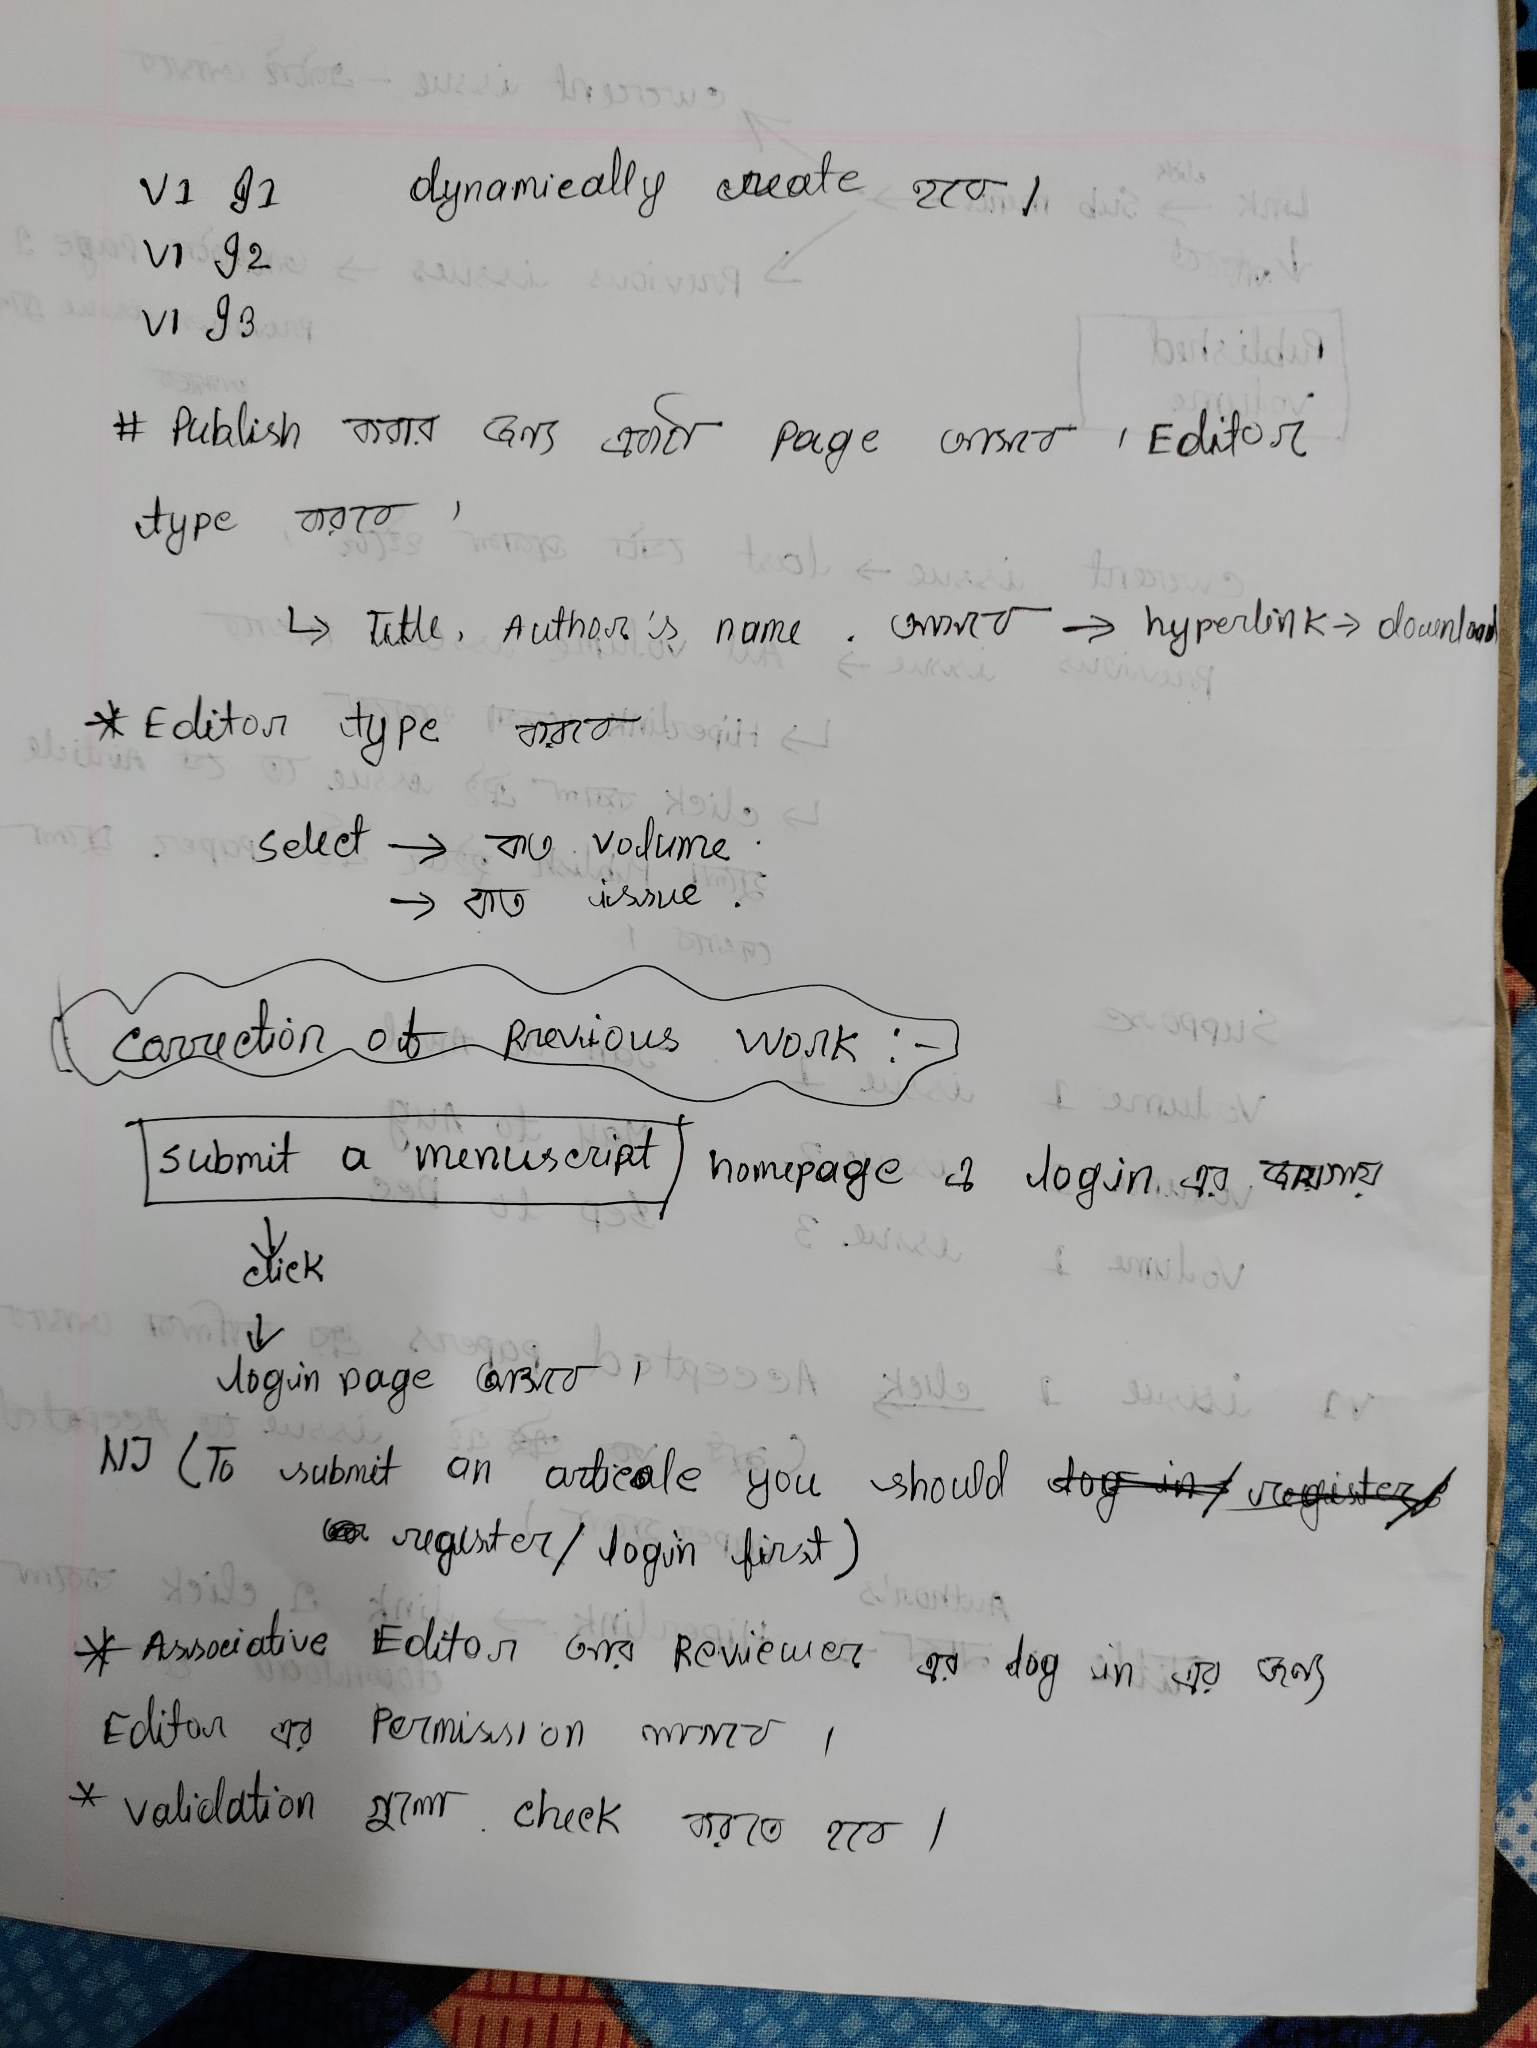 V1 I1 dynamically create হবে।
V1 I2
V1 I3
# Publish করার জন্য একটা page আসবে। Editor
type করবে।
↳ Title, Author's name. আসবে → hyperlink → download
* Editor type করবে
select → কত volume.
→ কত issue.
Correction of Previous Work :-
submit a menuscript homepage এ login এর জায়গায়
↓
click
↓
login page আসবে।
(To submit an articale you should log in/ register/
register/ login first)
* Associative Editor আর Reviewer এর log in এর জন্য
Editor এর Permission লাগবে।
* validation গুলো check করতে হবে।